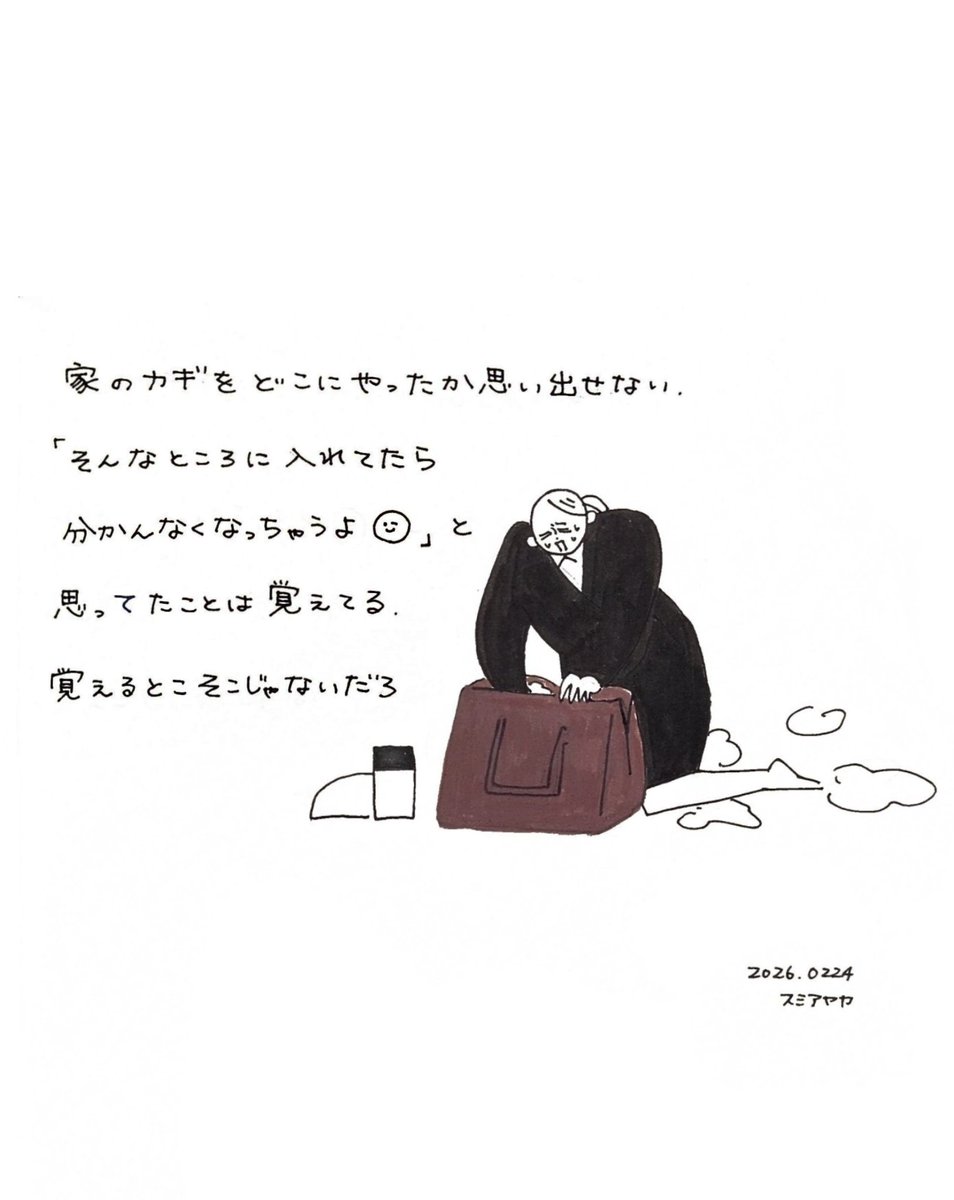 家のカギをどこにやったか思い出せない.
「そんなところに入れてたら
分かんなくなっちゃうよ☺」と
思ってたことは覚えてる.
覚えるとこそこじゃないだろ
2026.0224
スミアヤカ